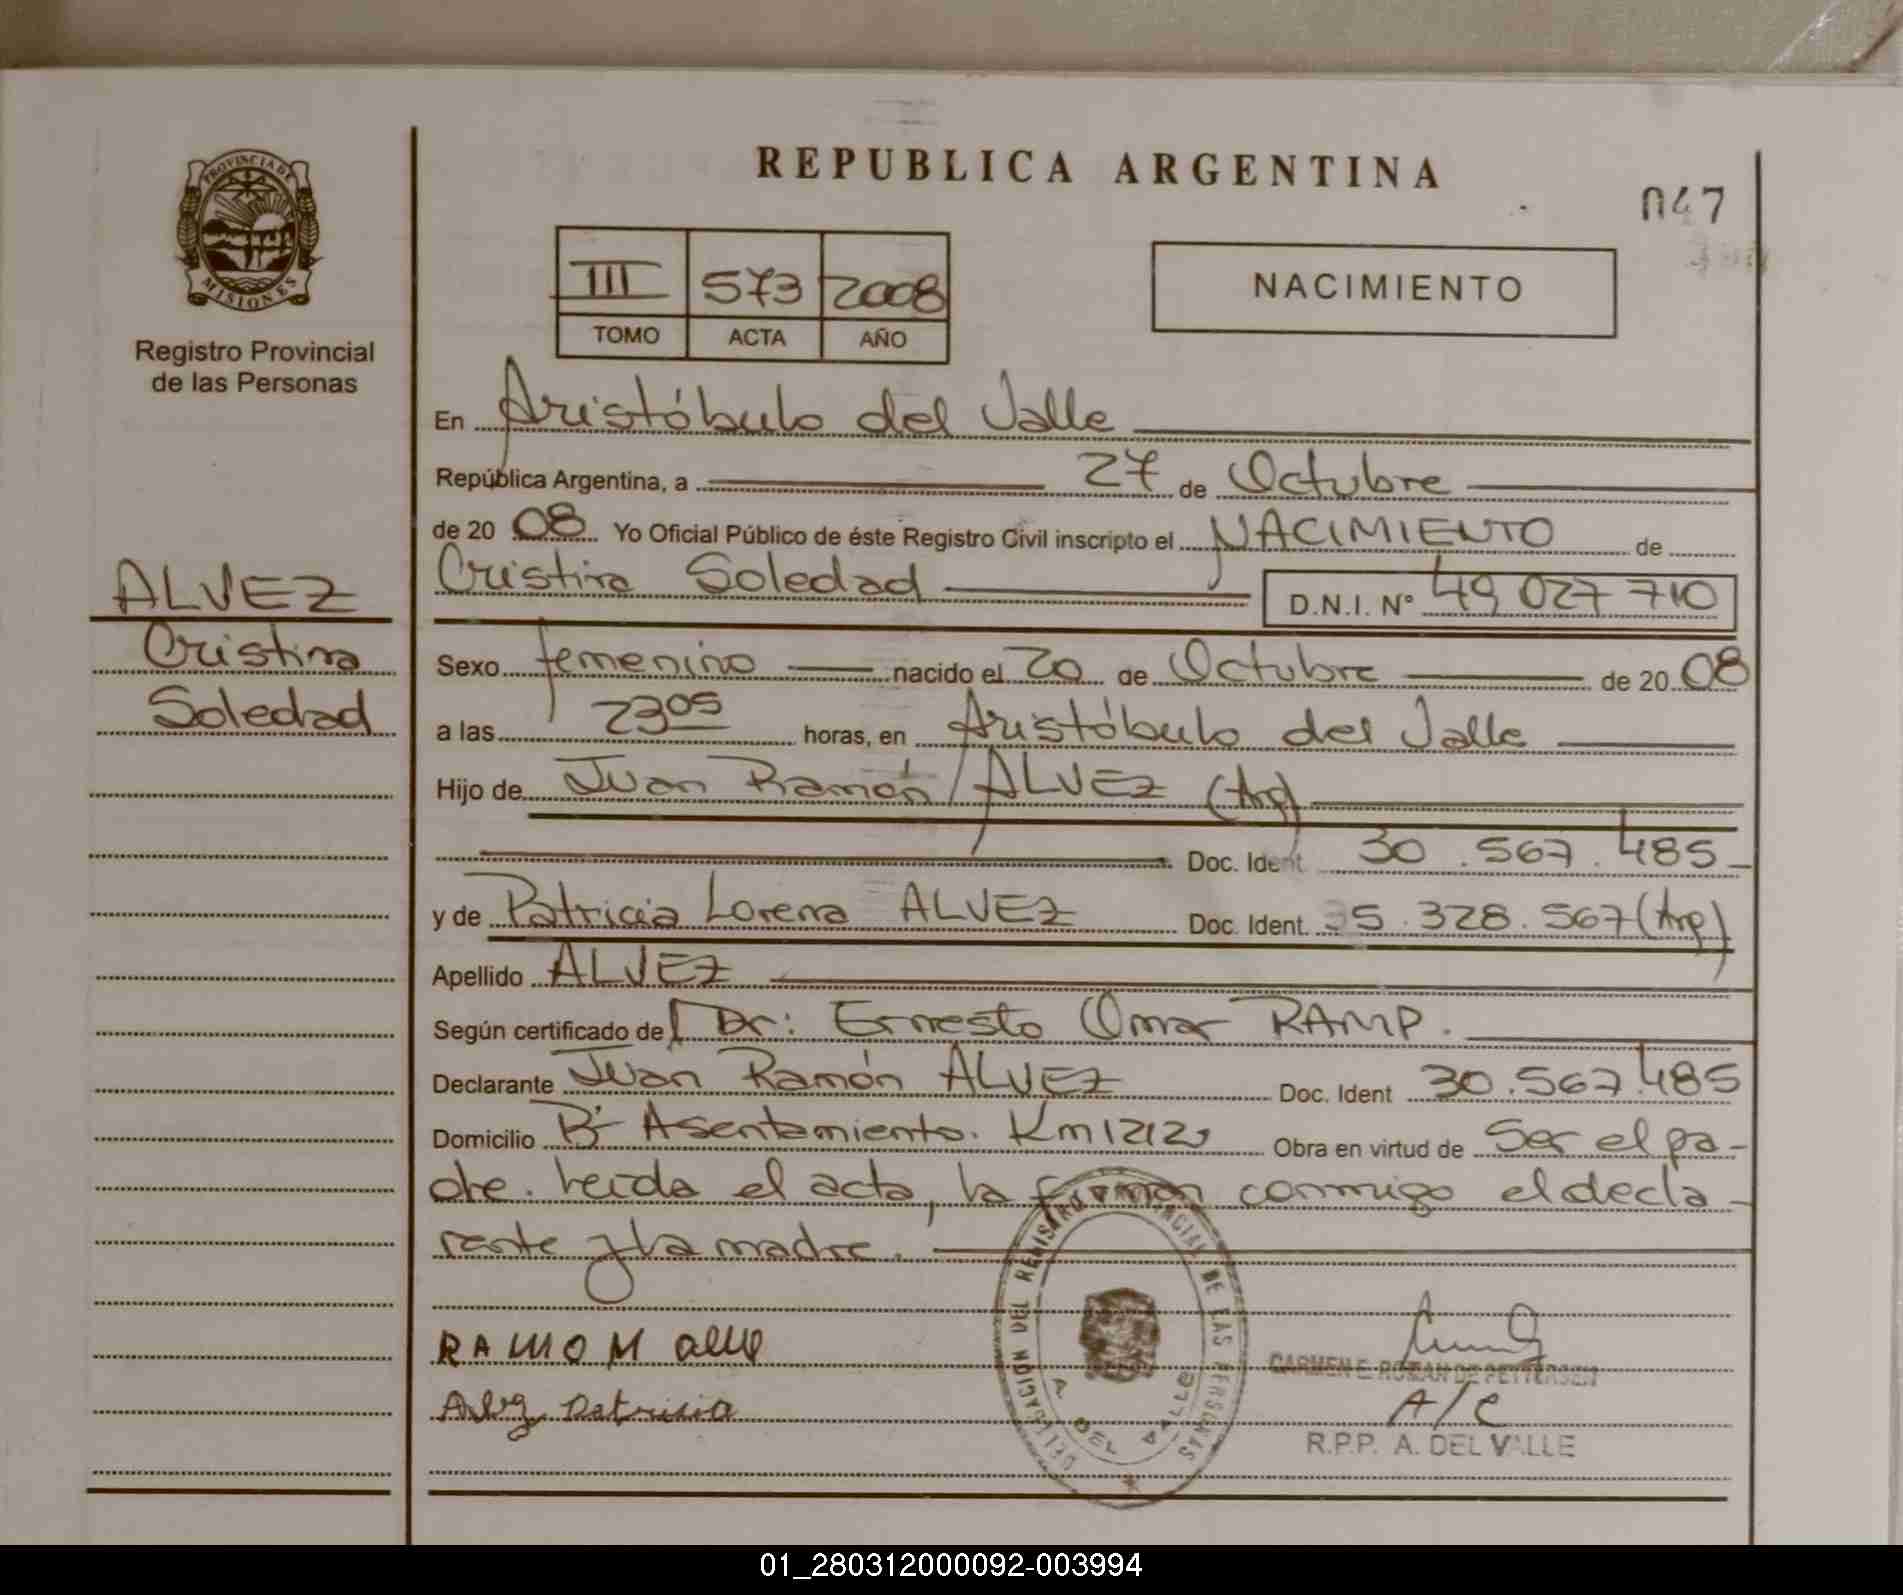 PROVINCIA DE
MISIONES
Registro Provincial
de las Personas
ALVEZ
Cristina
Soledad
REPUBLICA ARGENTINA
047
III 573 2008
TOMO ACTA AÑO
NACIMIENTO
En Aristóbulo del Valle
República Argentina, a 27 de Octubre
de 20 08 Yo Oficial Público de éste Registro Civil inscripto el NACIMIENTO de
Cristina Soledad D.N.I. N° 49 027 710
Sexo femenino nacido el 20 de Octubre de 20 08
a las 23 05 horas, en Aristóbulo del Valle
Hijo de Juan Ramón ALVEZ (Arg)
Doc. Ident. 30.567.485
y de Patricia Lorena ALVEZ Doc. Ident. 35.328.567 (Arg)
Apellido ALVEZ
Según certificado de Dr: Ernesto Omar RAMP.
Declarante Juan Ramón ALVEZ Doc. Ident 30.567.485
Domicilio B° Asentamiento. Km 1212 Obra en virtud de Ser el pa-
dre. Leída el acta, la firman conmigo el decla-
rante y la madre.
RAMOM
Patricia
DELEGACION DEL REGISTRO PROVINCIAL DE LAS PERSONAS
A DEL VALLE
CARMEN E. ROMAN DE PETTERSEN
A/C
R.P.P. A. DEL VALLE
01_280312000092-003994